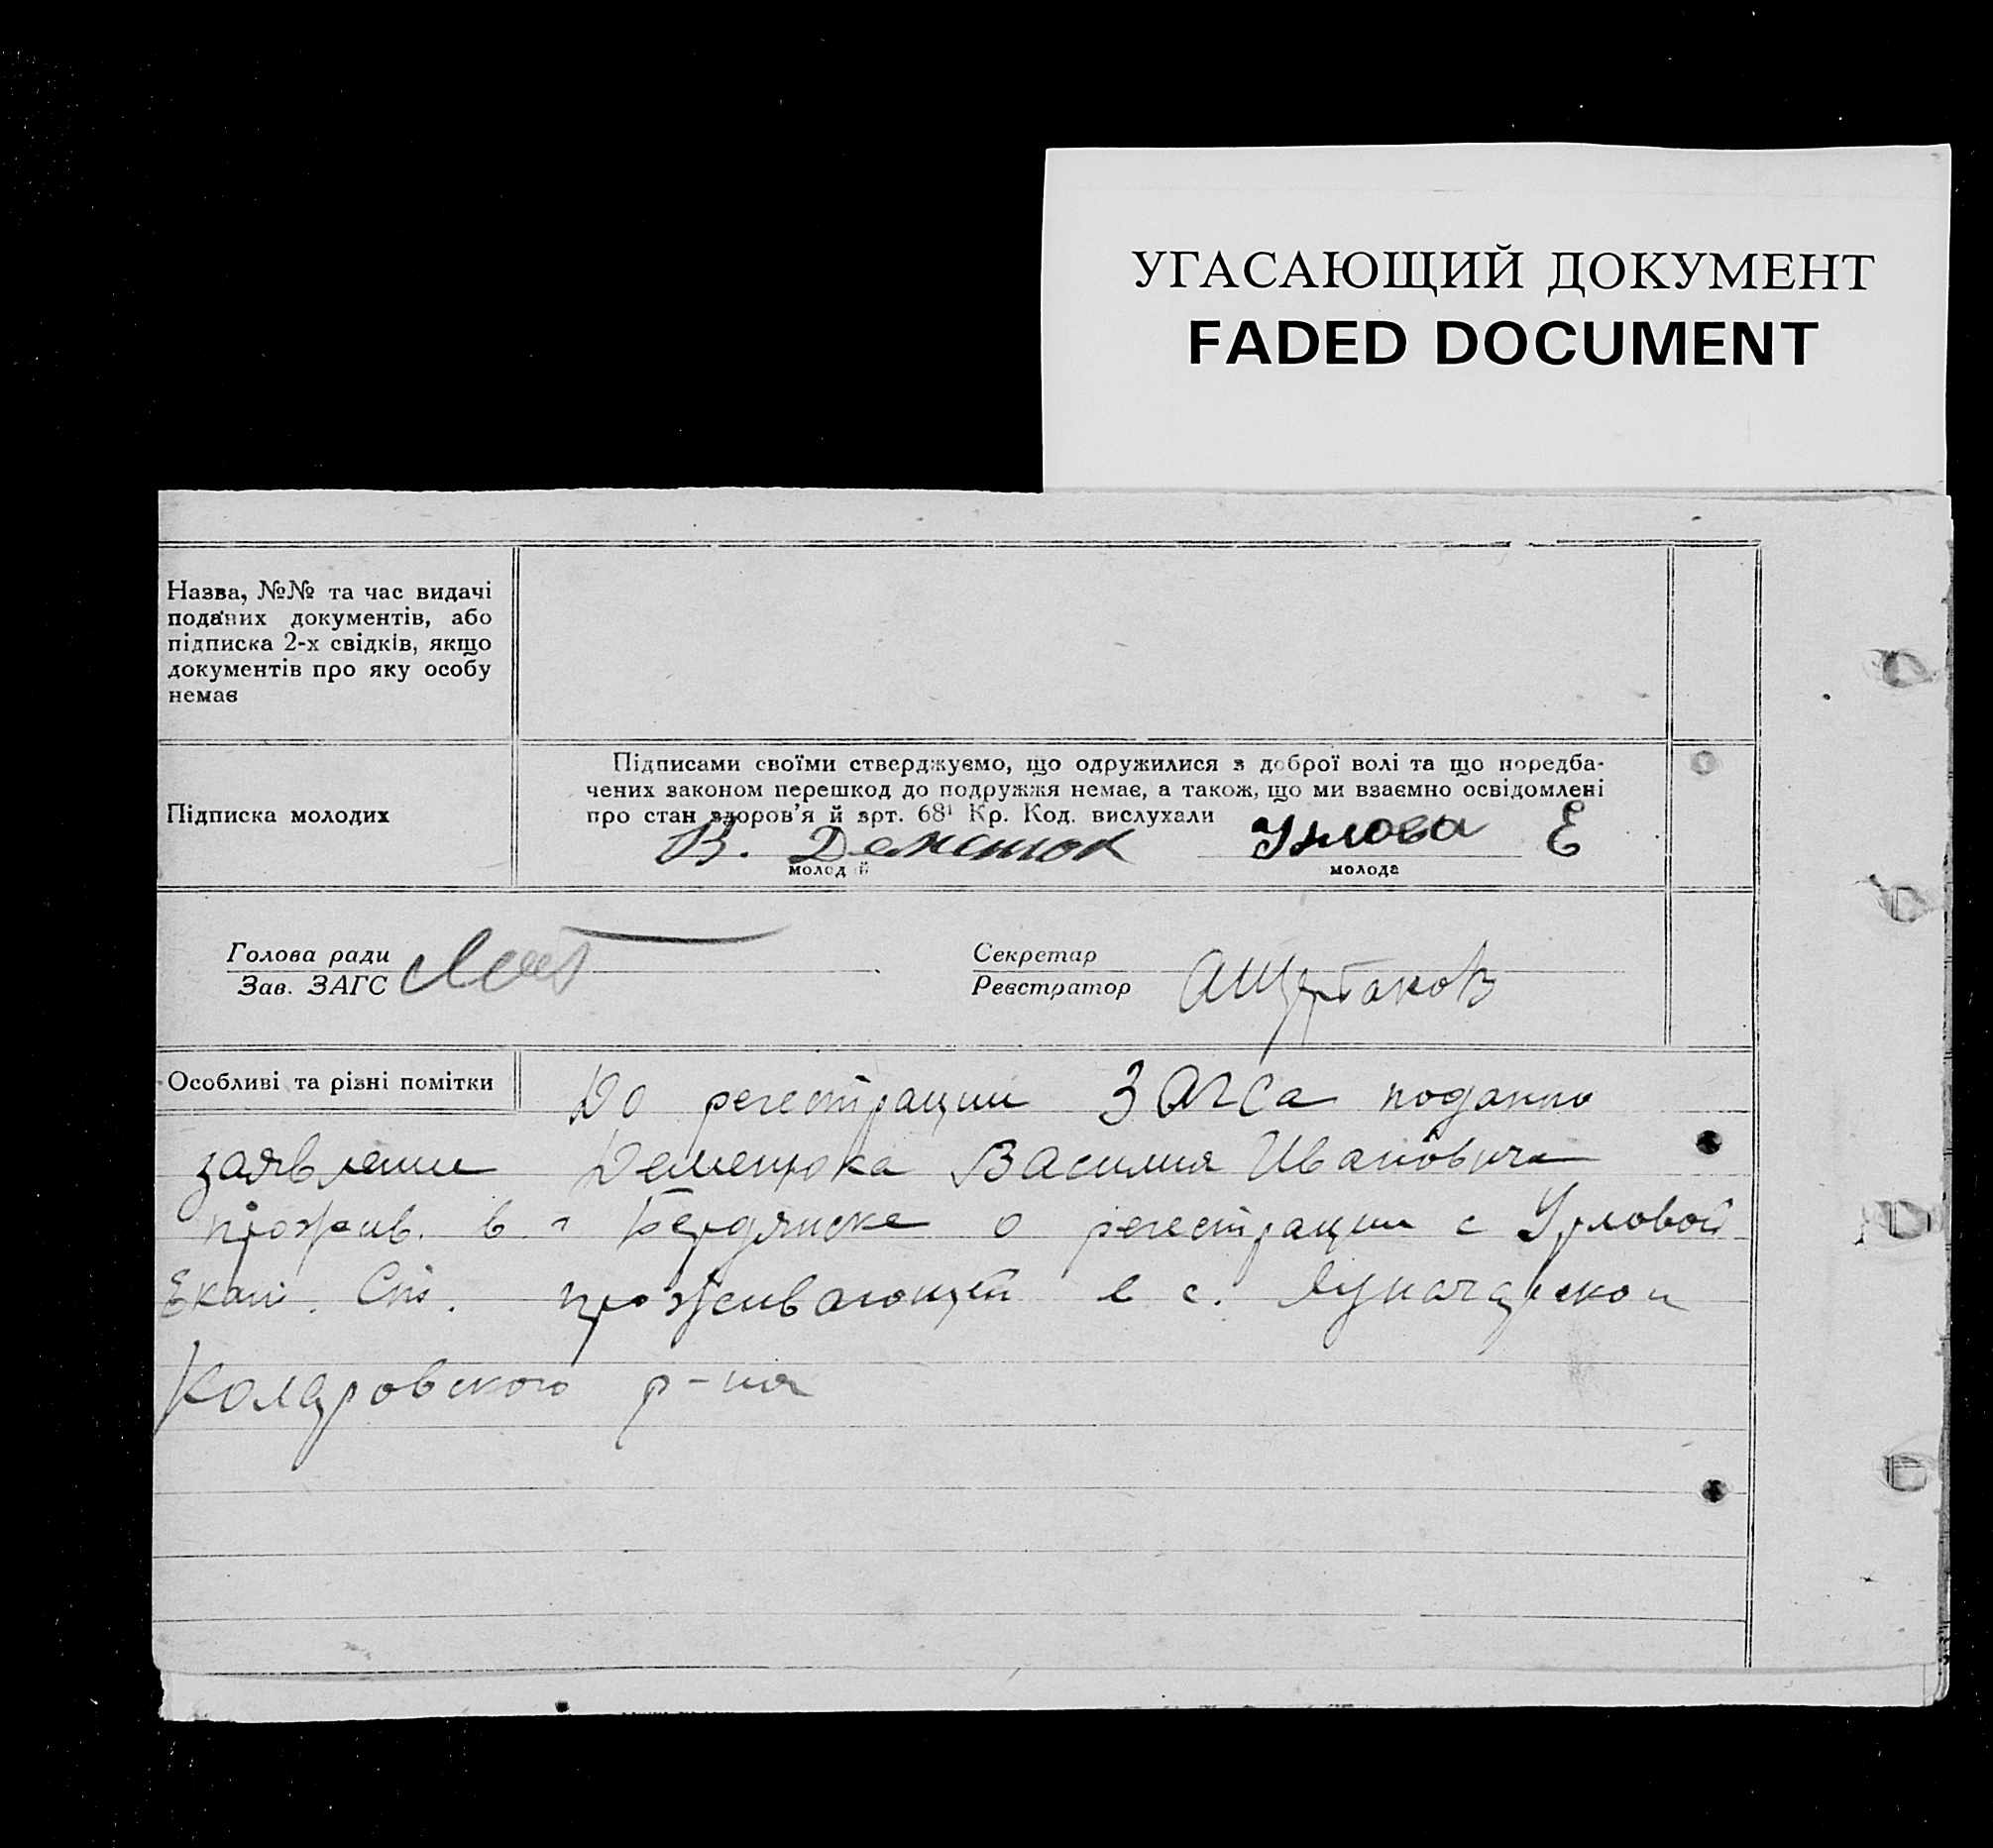 УГАСАЮЩИЙ ДОКУМЕНТ
FADED DOCUMENT
Назва, №№ та час видачі
поданих документів, або
підписка 2-х свідків, якщо
документів про яку особу
немає
Підписка молодих
Підписами своїми стверджуємо, що одружилися з доброї волі та що передба-
чених законом перешкод до подружжя немає, а також, що ми взаємно освідомлені
про стан здоров'я й арт. 68¹ Кр. Код. вислухали
В. Деменюк Урлова Е
молодий молода
Голова ради
Зав. ЗАГС
Секретар
Реєстратор
АЩербаков
Особливі та різні помітки
До регестрации ЗАГСа поданно
заявлении Деменюка Василия Ивановича
прожив. в г Бердянске о регестрации с Урловой
Екат. Ст. проживающей в с. Луначарском
Коларовского р-на